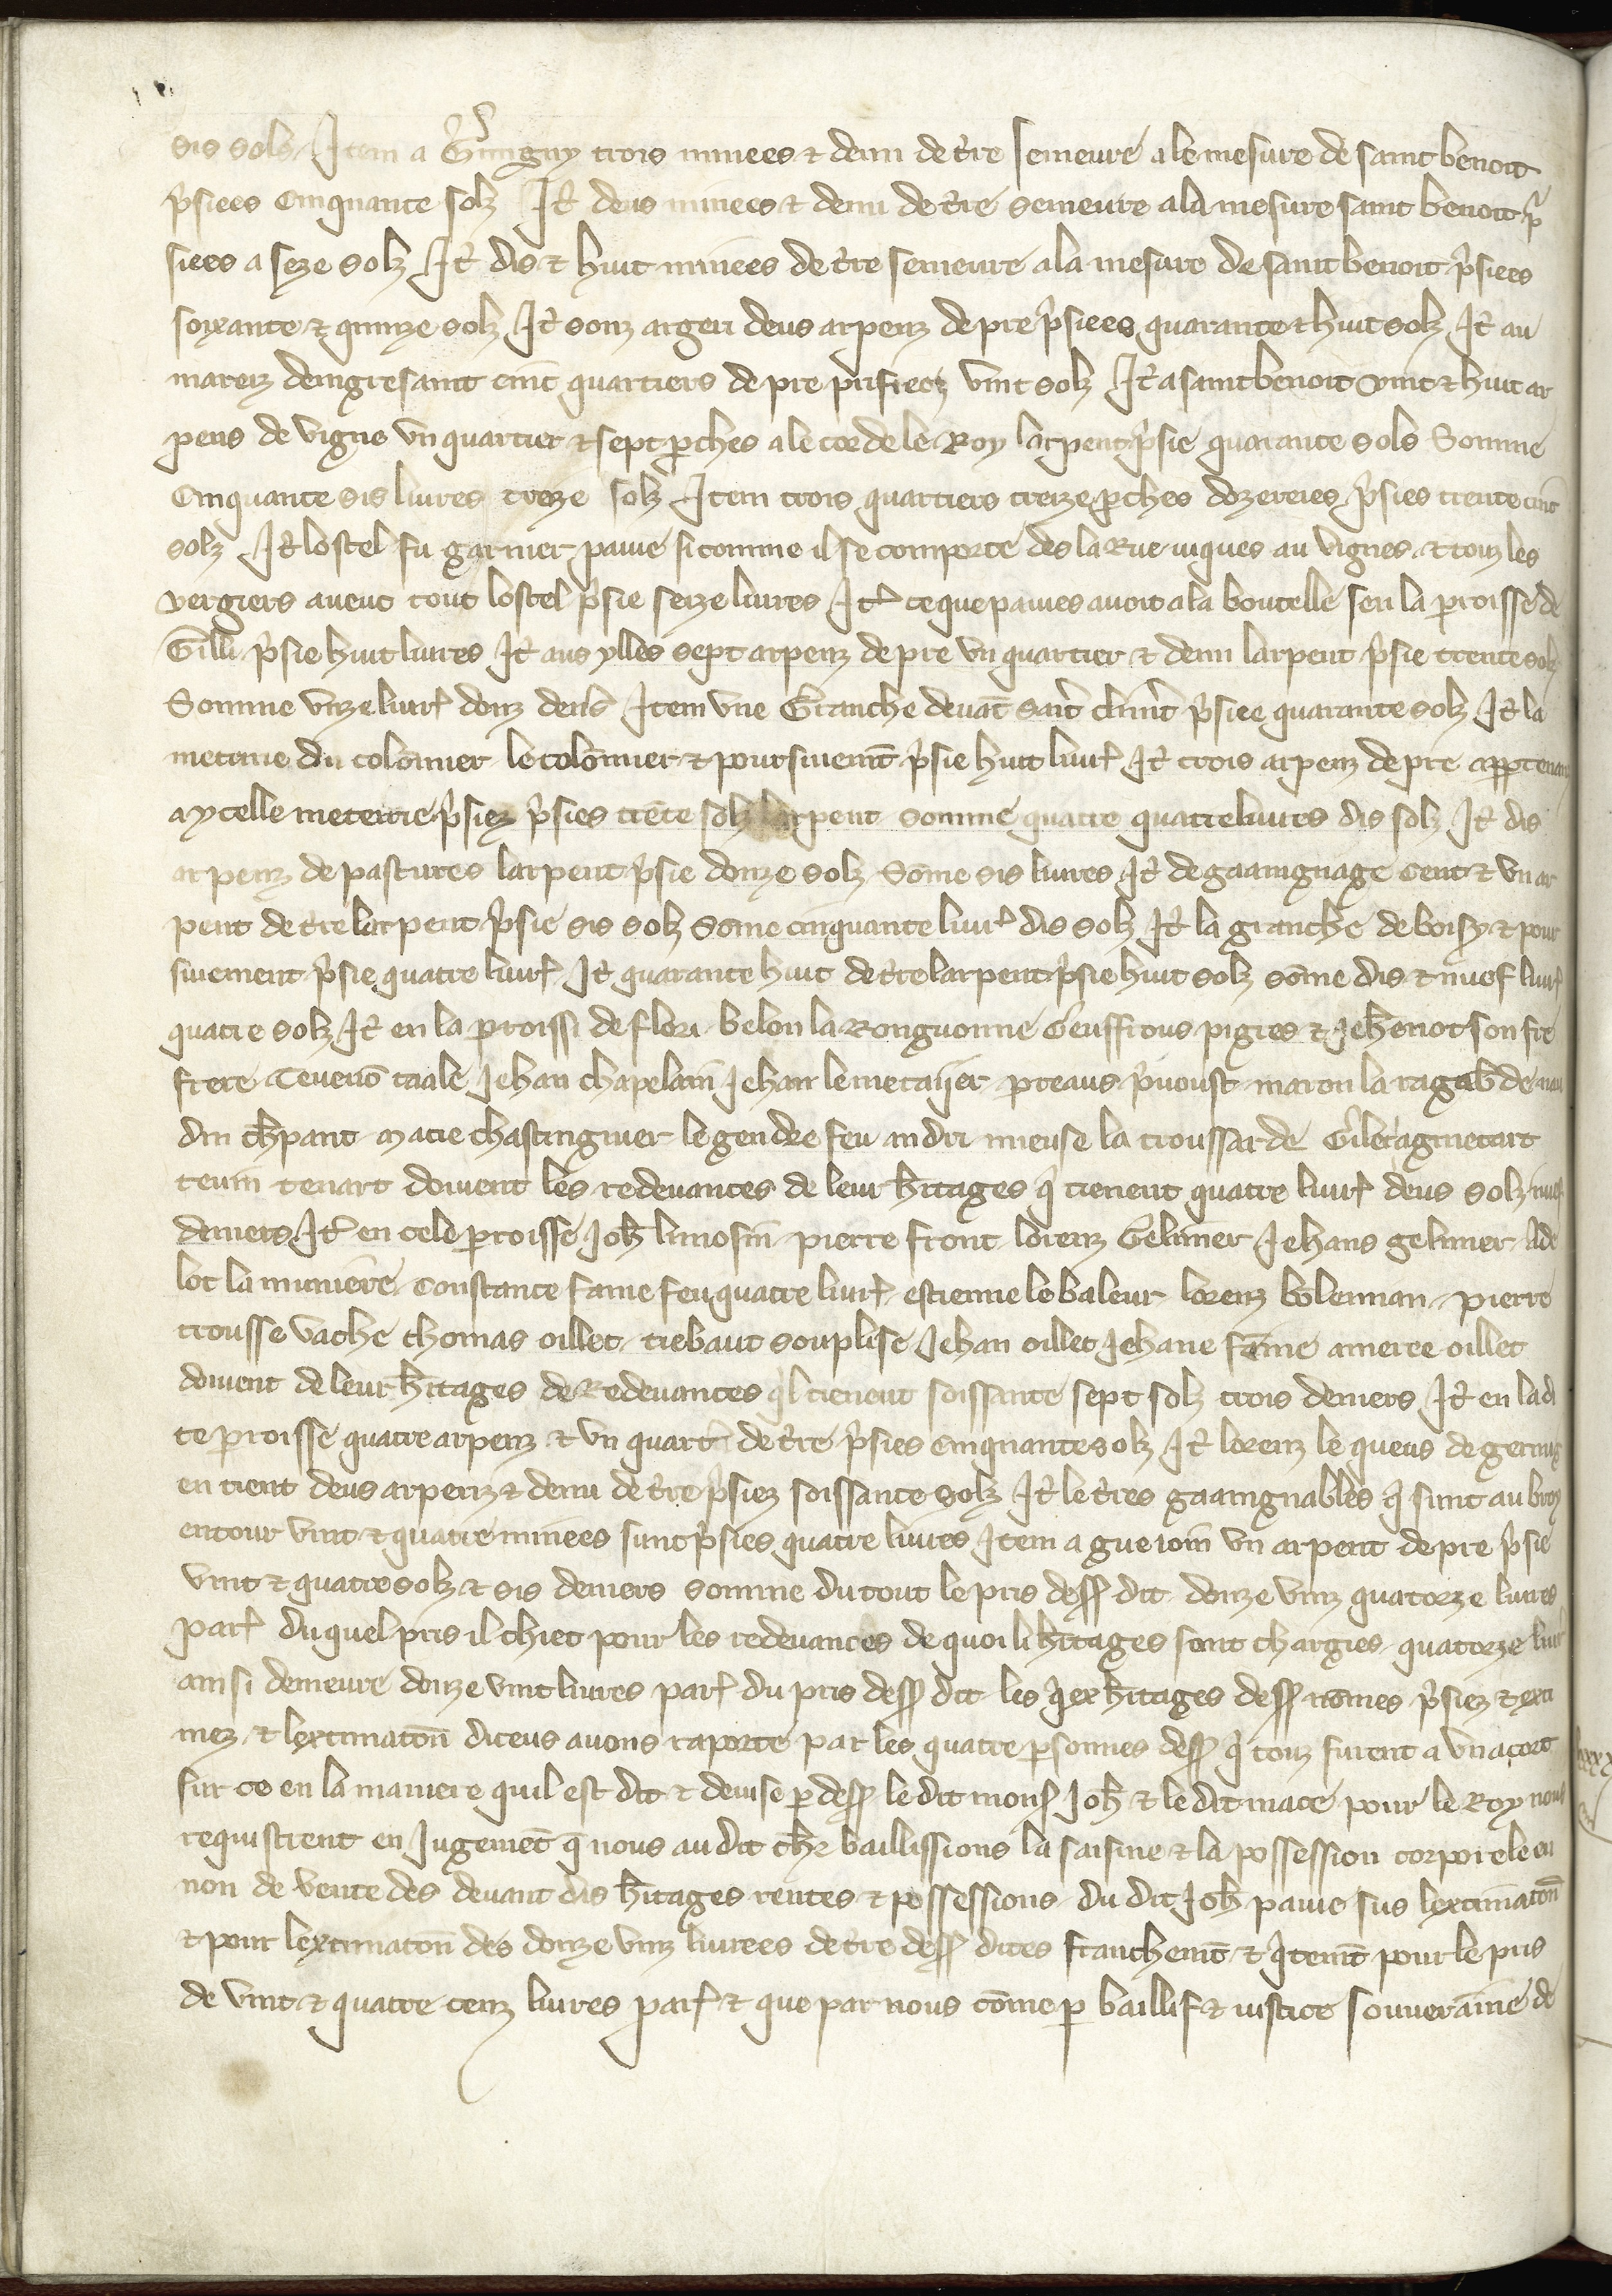 sis solz Item a Germigny trois minees ⁊ demi de t̄re semeure a le mesure de saint benoit
p̓siees cinquante solz It̄ deus minees ⁊ demi de t̄re semeure a la mesure saint benoit p̓
siees a seze solz It̄ dis ⁊ huit minees de t̄re semeure a la mesure de saint benoit p̓siees
soixante ⁊ quinze solz It̄ souz argeri deus arpenz de pre p̓siees quarante ⁊ huit solz It̄ au
mareiz dengresaint cinc quartiers de pre prisiees vint solz It̄ a saint benoit vint ⁊ huit ar
pens de vigne vn quartier ⁊ sept ꝑches a le corde le Roy larpent p̓sie quarante sols Somme
Cinquante sis liures treze solz Item trois quartiers treize ꝑches dozereies p̓sies trente cinc
solz It̄ lostel fu garnier paue si comme il se comporte des la Rue iuques au vignes ⁊ touz les
vergiers aueuc tout lostel p̓sie seize liures It̄ ce que paues auoit a la boutelle sen la ꝑroisse de
Gilli p̓sie huit liures It̄ aus ylles sept arpenz de pre vn quartier ⁊ demi larpent p̓sie trente solz
Somme vnze liur̄ douz den̄s Item vne Granche deuāt saīt climt̄ p̓siee quarante solz It̄ la
meterie du colōmier le colōmier ⁊ poursinem̄t p̓sie huit liur̄ It̄ trois arpenz de pre appꝑtenanz
a ycelle meterrie p̓siez p̓sies trēte solz larpent somme quatre quatre liures dis solz It̄ dis
arpenz de pastures larpent p̓sie donze solz Sōme sis liures It̄ de gaaingnage Cent ⁊ vn ar
pent de t̄re larpent p̓sie sis solz Sōme cinquante liur̄ dis solz It̄ la granche de boisy ⁊ pour
siuement p̓sie quatre liur̄ It̄ quarante huit de t̄re larpent p̓sie huit solz sōme dis ⁊ nuef liur̄
quatre solz It̄ en la ꝑroissi de flori belon la Ronguonne Geuffrous pigres ⁊ Jeh̄enot son fre
frere Teuenō taale Jehan chapelain Jehan le metaijer preaus p̓uoust maron la ragab̄de
din ch̄pant macie chastingnier le gendre feu andri mieuse la troussarde Gilet
teuin tenart doiuent les redeuances de leur h̄itages q̄ tienent quatre liur̄ deus solz nuef
deniers It̄ en cele ꝑroisse Joh̄ limosin pierre front lorenz Gelinier Jehans gelinier Ade
lot la muniere Constance fame feu quatre liur̄ estienne le baleur lorenz bolennan pierre
trousse vache thomas oillet tiebaut souplise Jehan oillet Jehane fāme ameree oillet
doiuent de leur h̄itages de Redeuances q̄l tienent soissante sept solz trois deniers It̄ en la di
te ꝑroisse quatre arpenz ⁊ vn quart̓ de t̄re p̓sies cinquante solz It̄ lorenz le queus de germig
en tient deus arpenz ⁊ demi de t̄re p̓siez soissante solz It̄ le t̄res gaaingnables q̄ sunt au broy
entour vint ⁊ quatre minees sunt p̓sies quatre liures Item a gue ioin vn arpent de pre p̓sie
vint ⁊ quatre solz ⁊ sis deniers somme du tout le pris dess̄ dit donze vinz quatorze liures
par̄ du quel pris il chiet pour les redeuances de quoi li h̄itages sont chargies quatorze liur̄
ainsi demeure donze vint liures par̄ du pris dess̄ dit les q̄ex h̄itages dess̄ nōmes p̓siez ⁊ exti
mez ⁊ lextimatōn diceus auons raporte par les quatre ꝑsonnes dess̄ q̄ touz furent a vn acort
sur ce en la maniere quil est dit ⁊ deuise ꝑ dess̄ le dit mons̄ Joh̄ ⁊ le dit mace pour le Roy nous
requistrent en Jugemēt q̄ nous au dit ch̄r baillissions la saisine ⁊ la possession corporele en
non de vente des deuant dis h̄itages rentes ⁊ possessions du dit Joh̄ paue sus lextimatōn
⁊ pour lextimatōn des donze vinz liurees de t̄re dess̄ dites franchem̄t ⁊ q̄tem̄t pour le pris
de vint ⁊ quatre cenz liures par̄ ⁊ que par nous cōme ꝑ baillif ⁊ iustice souueraine de